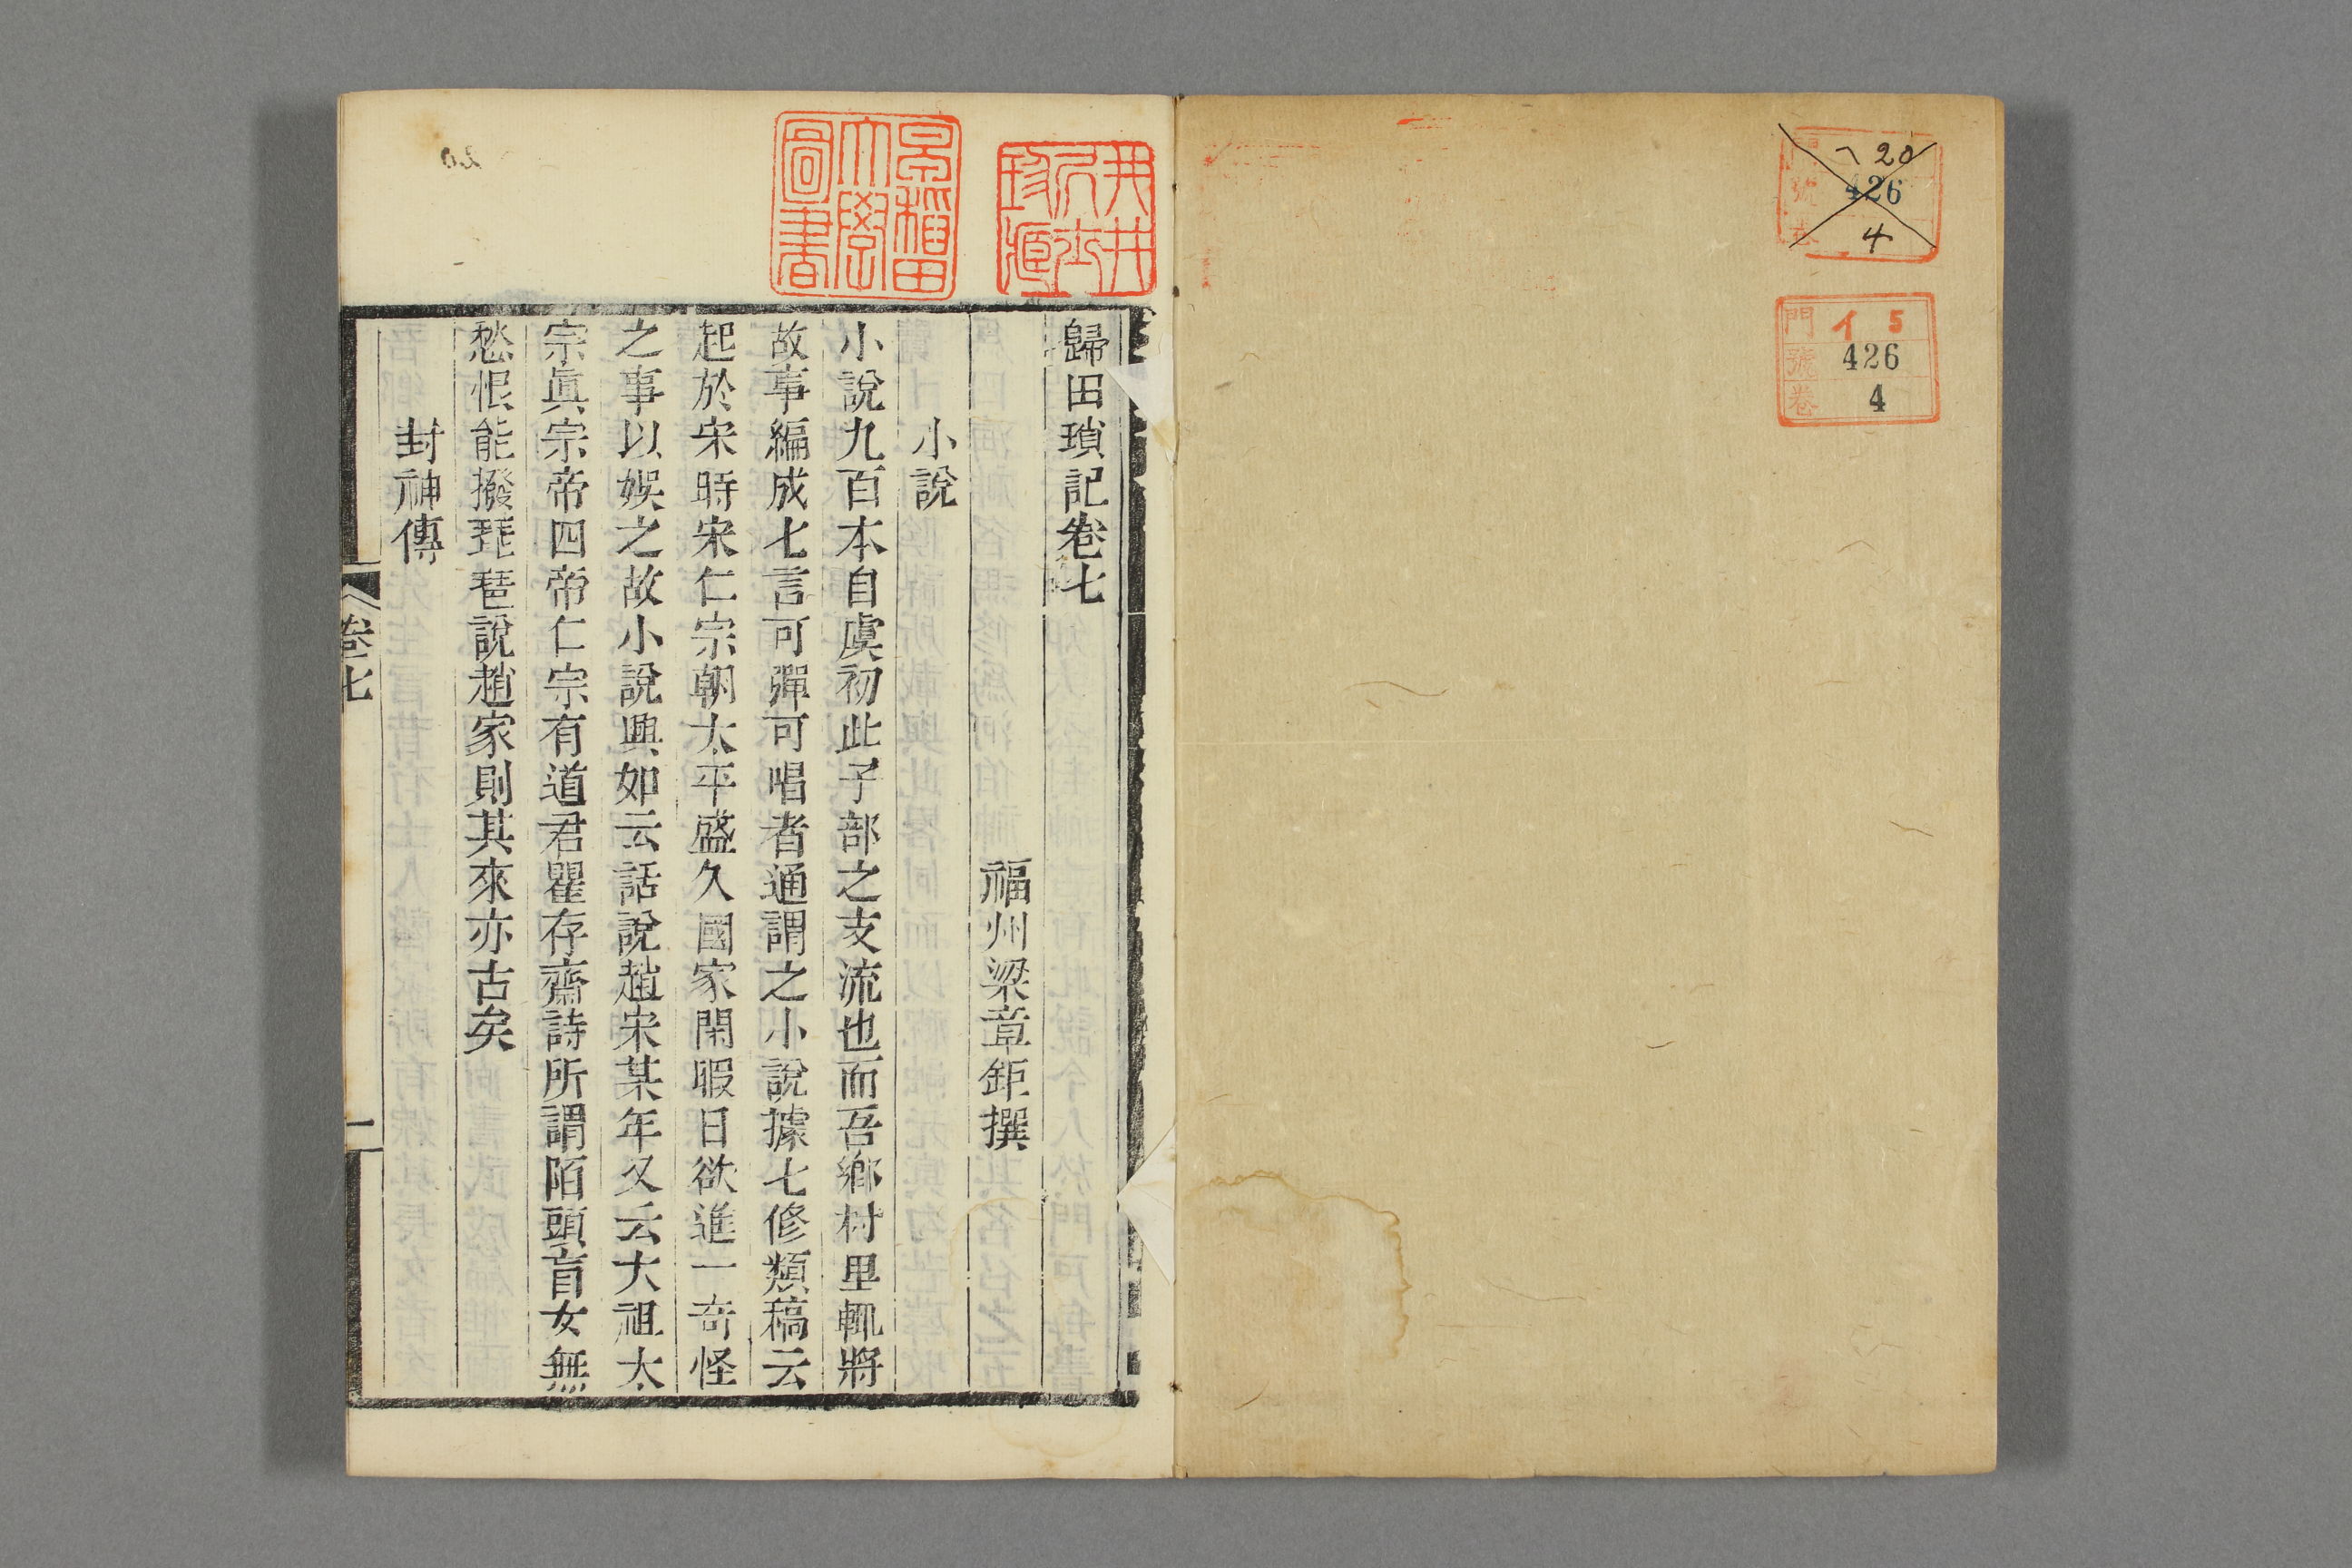 ヘ20
426
4
門 イ 5
號 426
卷 4
早稲田大學圖書
歸田瑣記卷七
福州梁章鉅撰
小說
小說九百本自虞初此子部之支流也而吾鄉村里輒將
故事編成七言可彈可唱者通謂之小說據七修類稿云
起於宋時宋仁宗朝太平盛久國家閑暇日欲進一奇怪
之事以娛之故小說興如云話說趙宋某年又云大祖太
宗眞宗帝四帝仁宗有道君瞿存齋詩所謂陌頭盲女無
愁恨能撥琵琶說趙家則其來亦古矣
封神傳
卷七
一